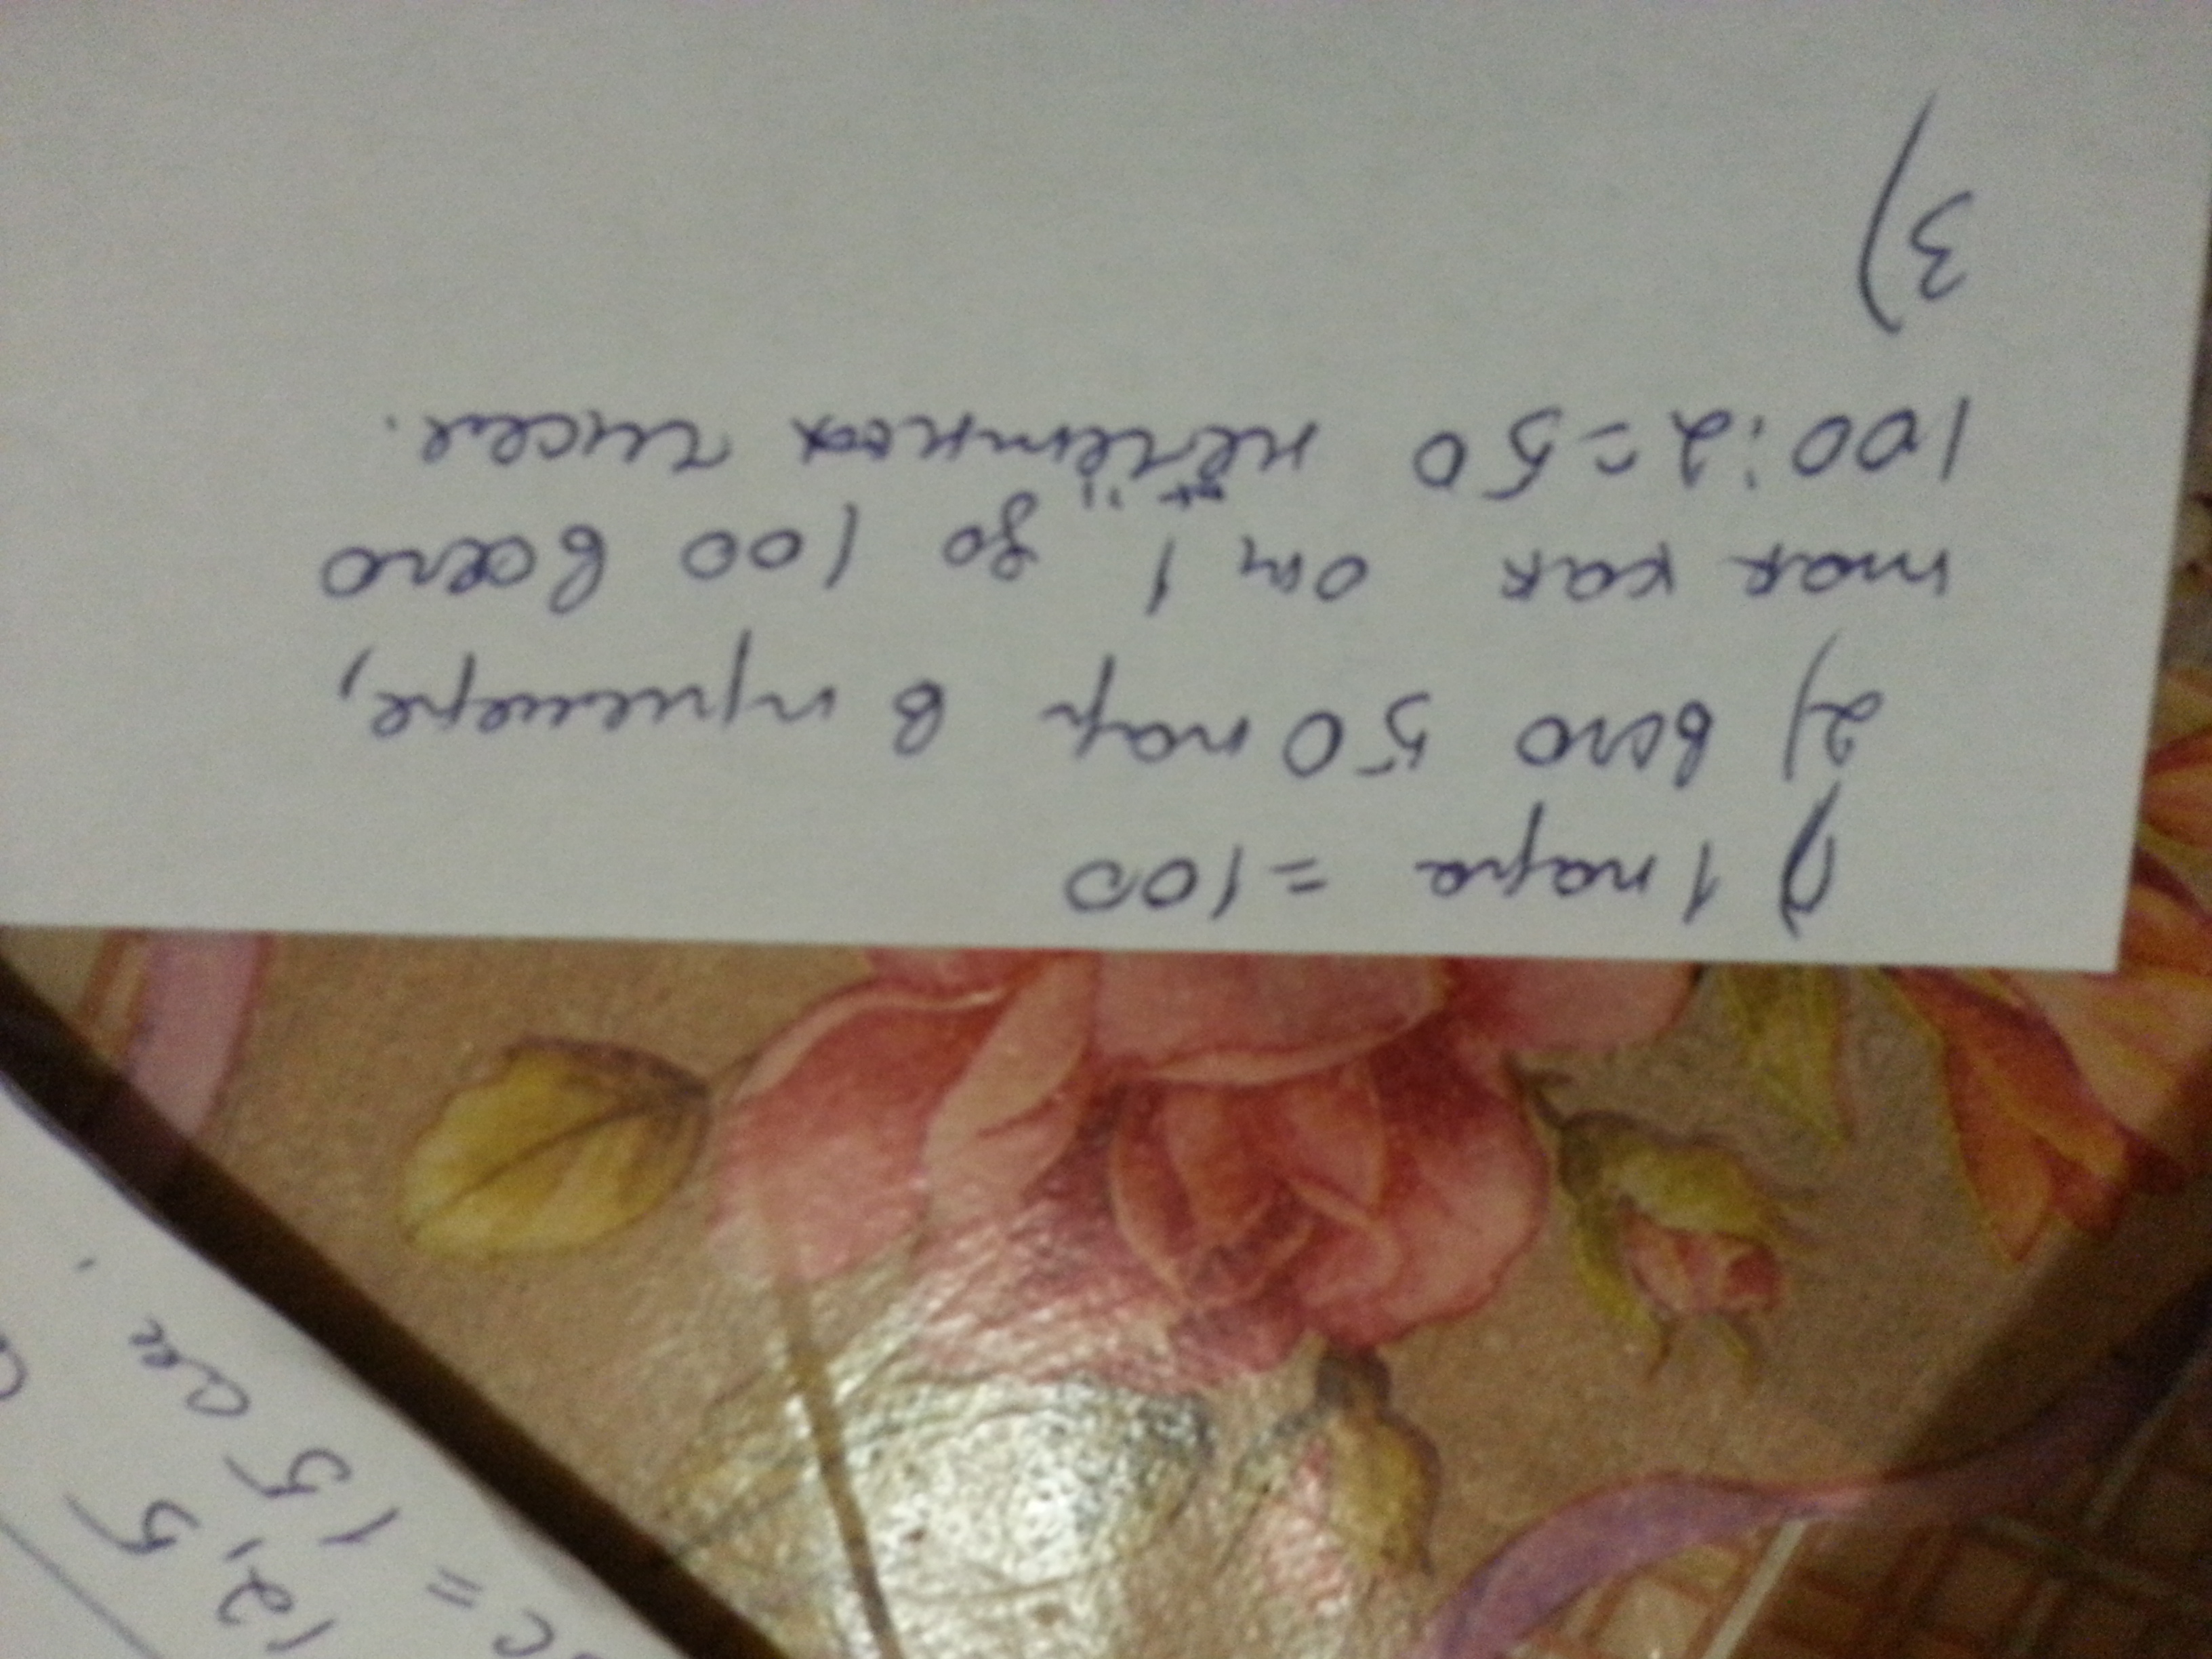 1) 1 пара = 100
2) всего 50 пар в примере,
так как от 1 до 100 всего
100:2=50 нечётных чисел.
3)
12,5
с = 15 см.